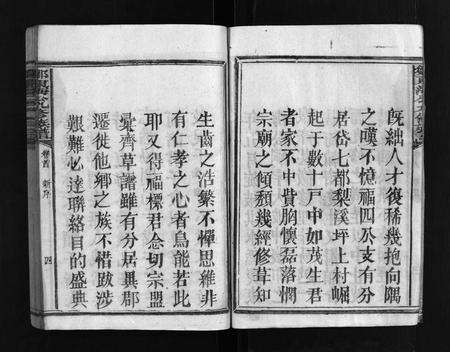 既絀人才復稀幾抱向隅
之嘆不憶福四公支有分
居岱七都梨溪坪上村崛
起于數十戸中如茂生君
者家不中貲胸懷磊落憫
宗廟之傾頹幾經修葺知
生齒之浩繁不憚思維非
有仁孝之心者烏能若此
耶又得福標君念切宗盟
彙齊草譜雖有分居異郡
遷徙他鄉之族不惜跋涉
艱難必達聯絡目的盛典
卷首
新序
四